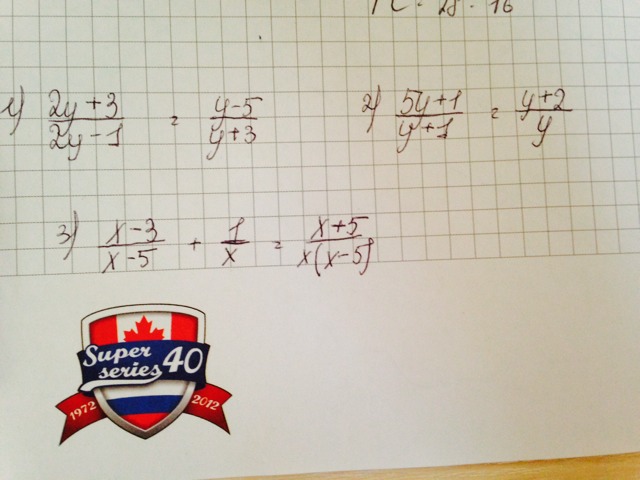 1) (2y+3)/(2y-1) = (y-5)/(y+3) 2) (5y+1)/(y+1) = (y+2)/y
3) (x-3)/(x-5) + 1/x = (x+5)/(x(x-5))
Super
series 40
1972 2012